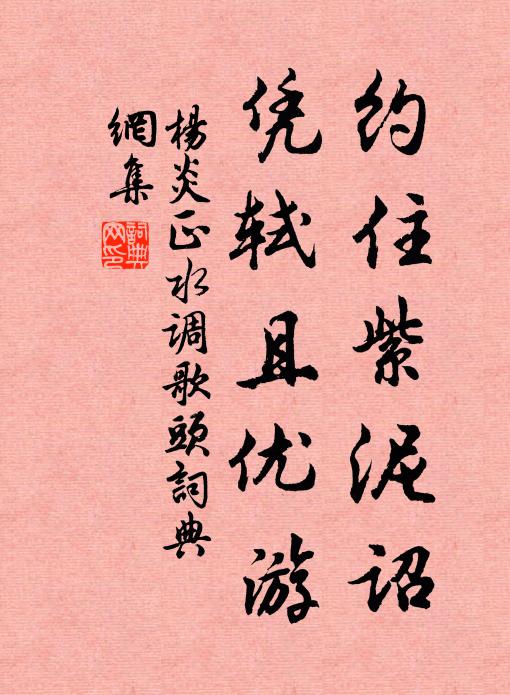 约住紫泥诏
凭轼且优游
楊炎正水调歌頭詞典
網集
詞典
网印